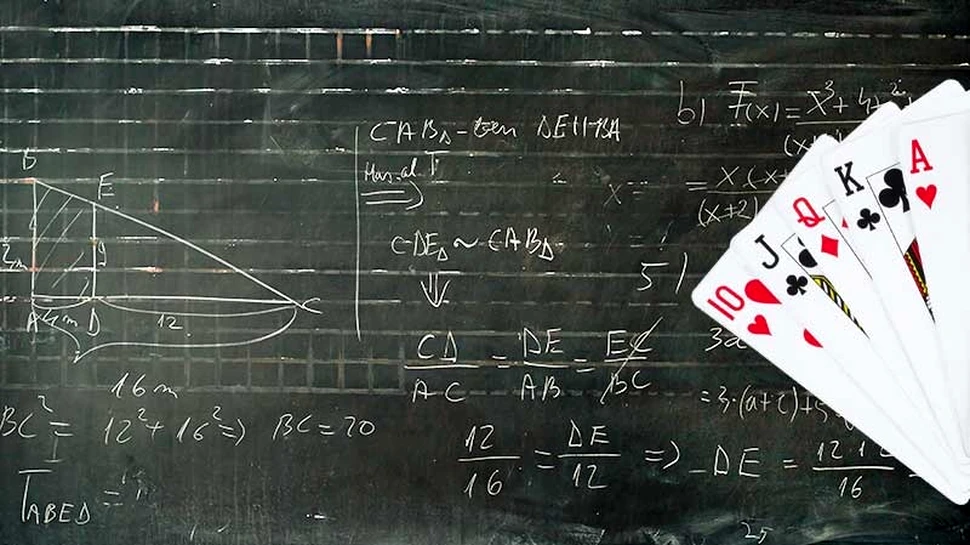 B
E
9
A 4m D 12 C
16 m
BC² = 12² + 16² ⇒ BC = 20
T_ABED =
CAB△ - ben DE || BA
⇓
CDE△ ~ CAB△
⇓
CD/AC = DE/AB = EC/BC
12/16 = DE/12 ⇒ DE = 12·12/16
b) F(x) = x³ + 4x²
(x
x = = x·(x+
(x+2)
5)
= 3·(a+c)+5
25
10
J
Q
K
A